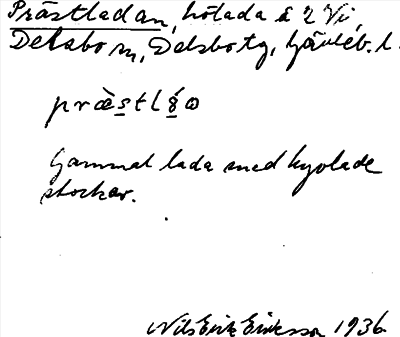 Prästladan, hölada å 2 Vi,
Delsbo sn, Delsbo tg, Gävleb. l.
præ̀stlå̀ɷ
Gammal lada med kyolade
stockar.
Nils Erik Eriksson 1936